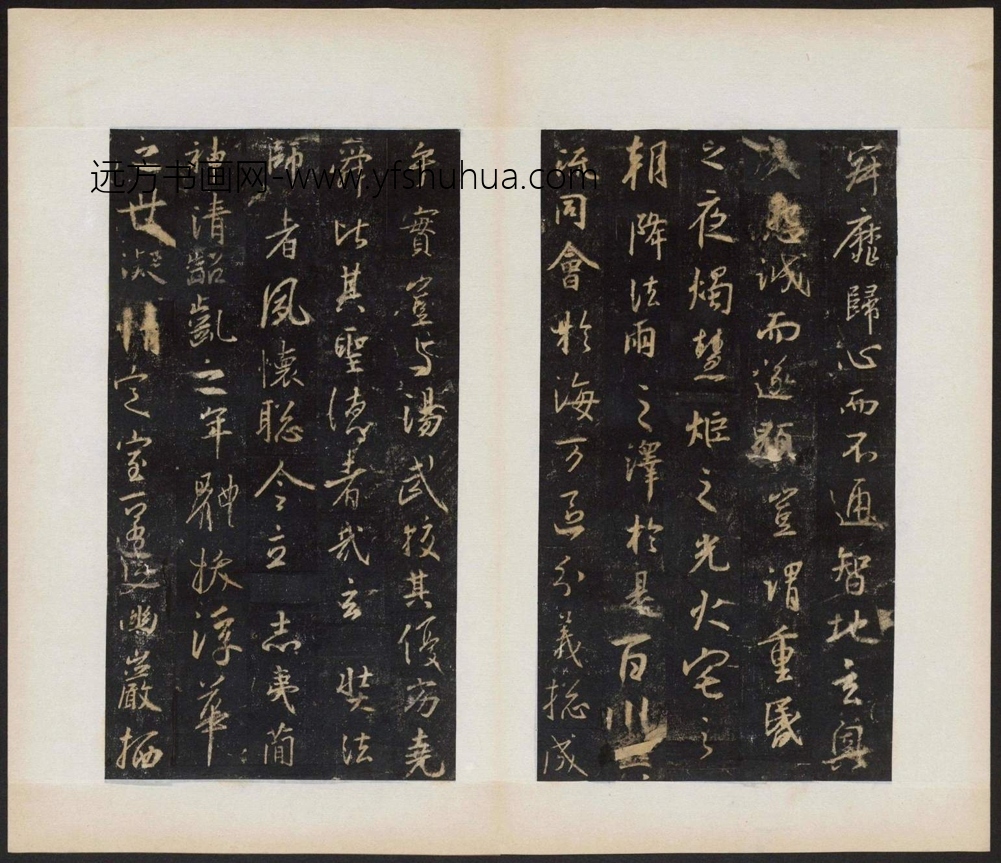 寂靡歸心而不通智地玄奧
感懇誠而遂顯豈謂重昏
之夜燭慧炬之光火宅之
朝降法雨之澤於是百川異
流同會於海万區分義捴成
乎實豈与湯武校其優劣堯
舜比其聖德者哉玄奘法
師者夙懷聡令立志夷簡
神清齠齔之年體拔浮華
之世凝情定室匿迹幽巖栖
远方书画网-www.yfshuhua.com